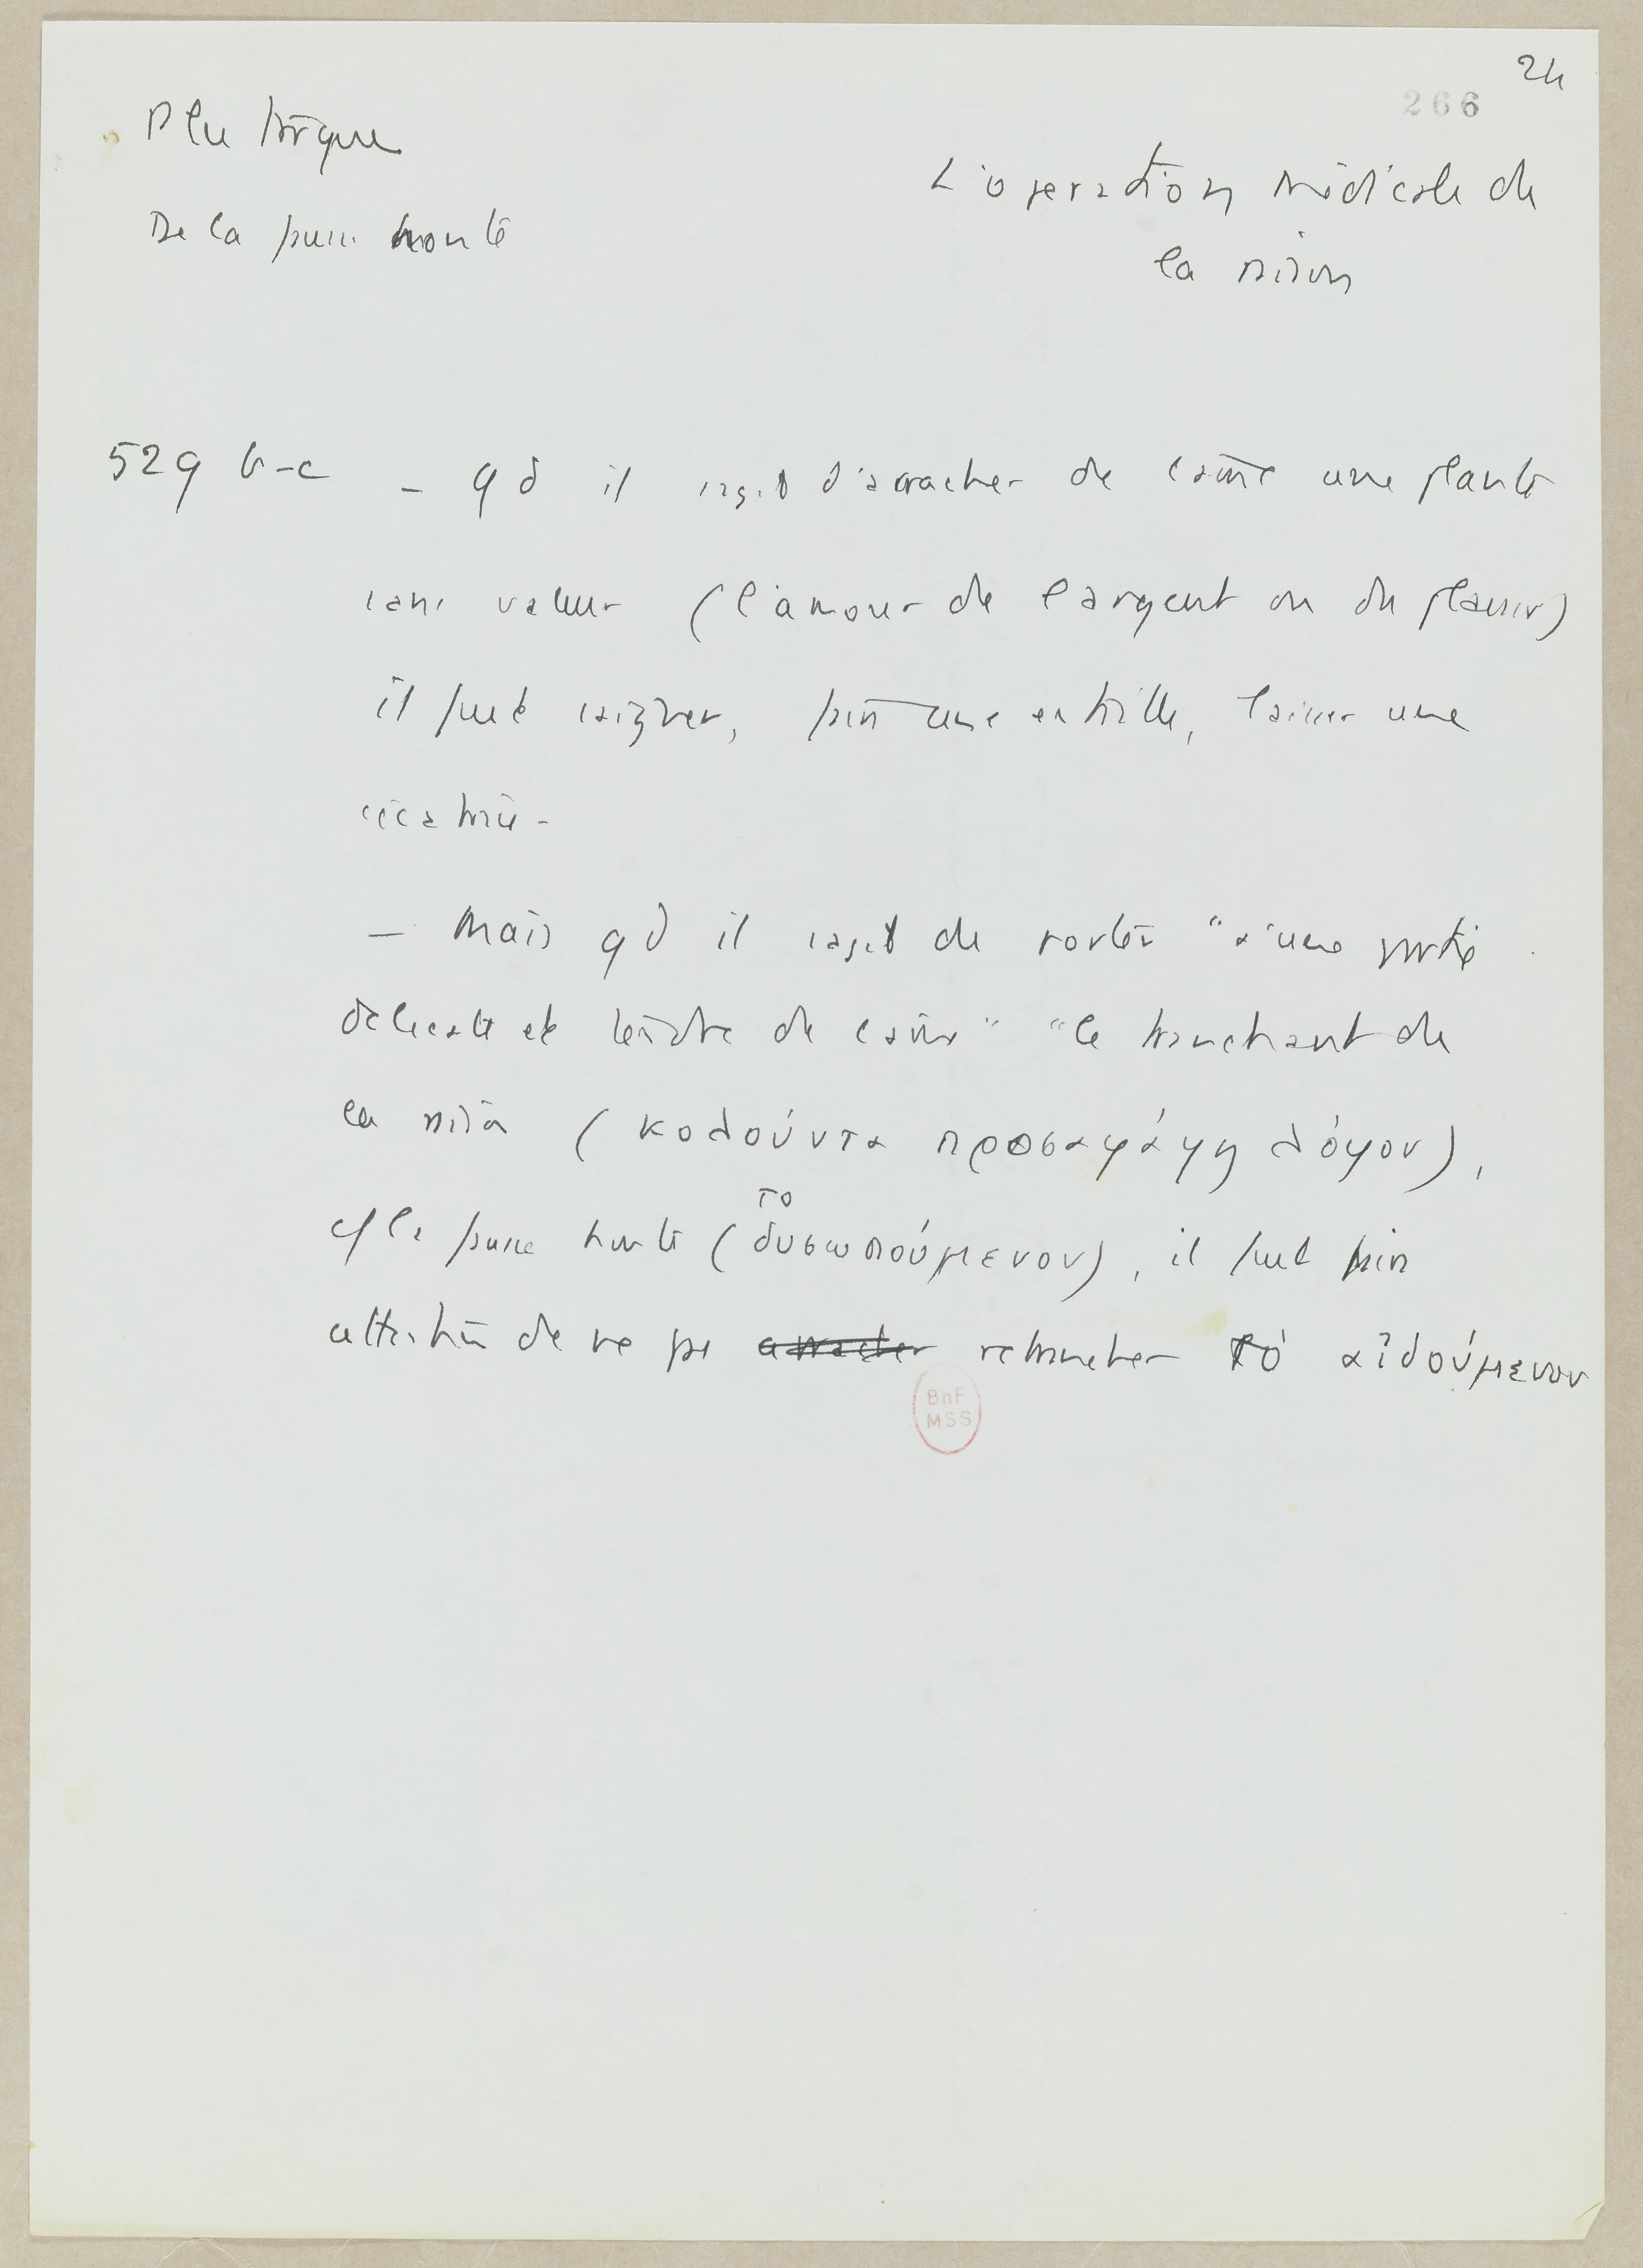 24
266
Plutarque
De la fausse honte
L'opération médicale de
la raison
529 b-c – qd il s'agit d'arracher de l'âme une plante
sans valeur (l'amour de l'argent ou du plaisir)
il faut saigner, faire une entaille, laisser une
cicatrice -
– Mais qd il s'agit de porter "à une partie
délicate et tendre de l'âme" "le tranchant de
la raison (κολούοντα προσαγάγῃ λόγον),
cf la fausse honte (το δυσωπούμενον), il faut faire
attention de ne pas arracher retrancher τὸ αἰδούμενον
BnF
MSS